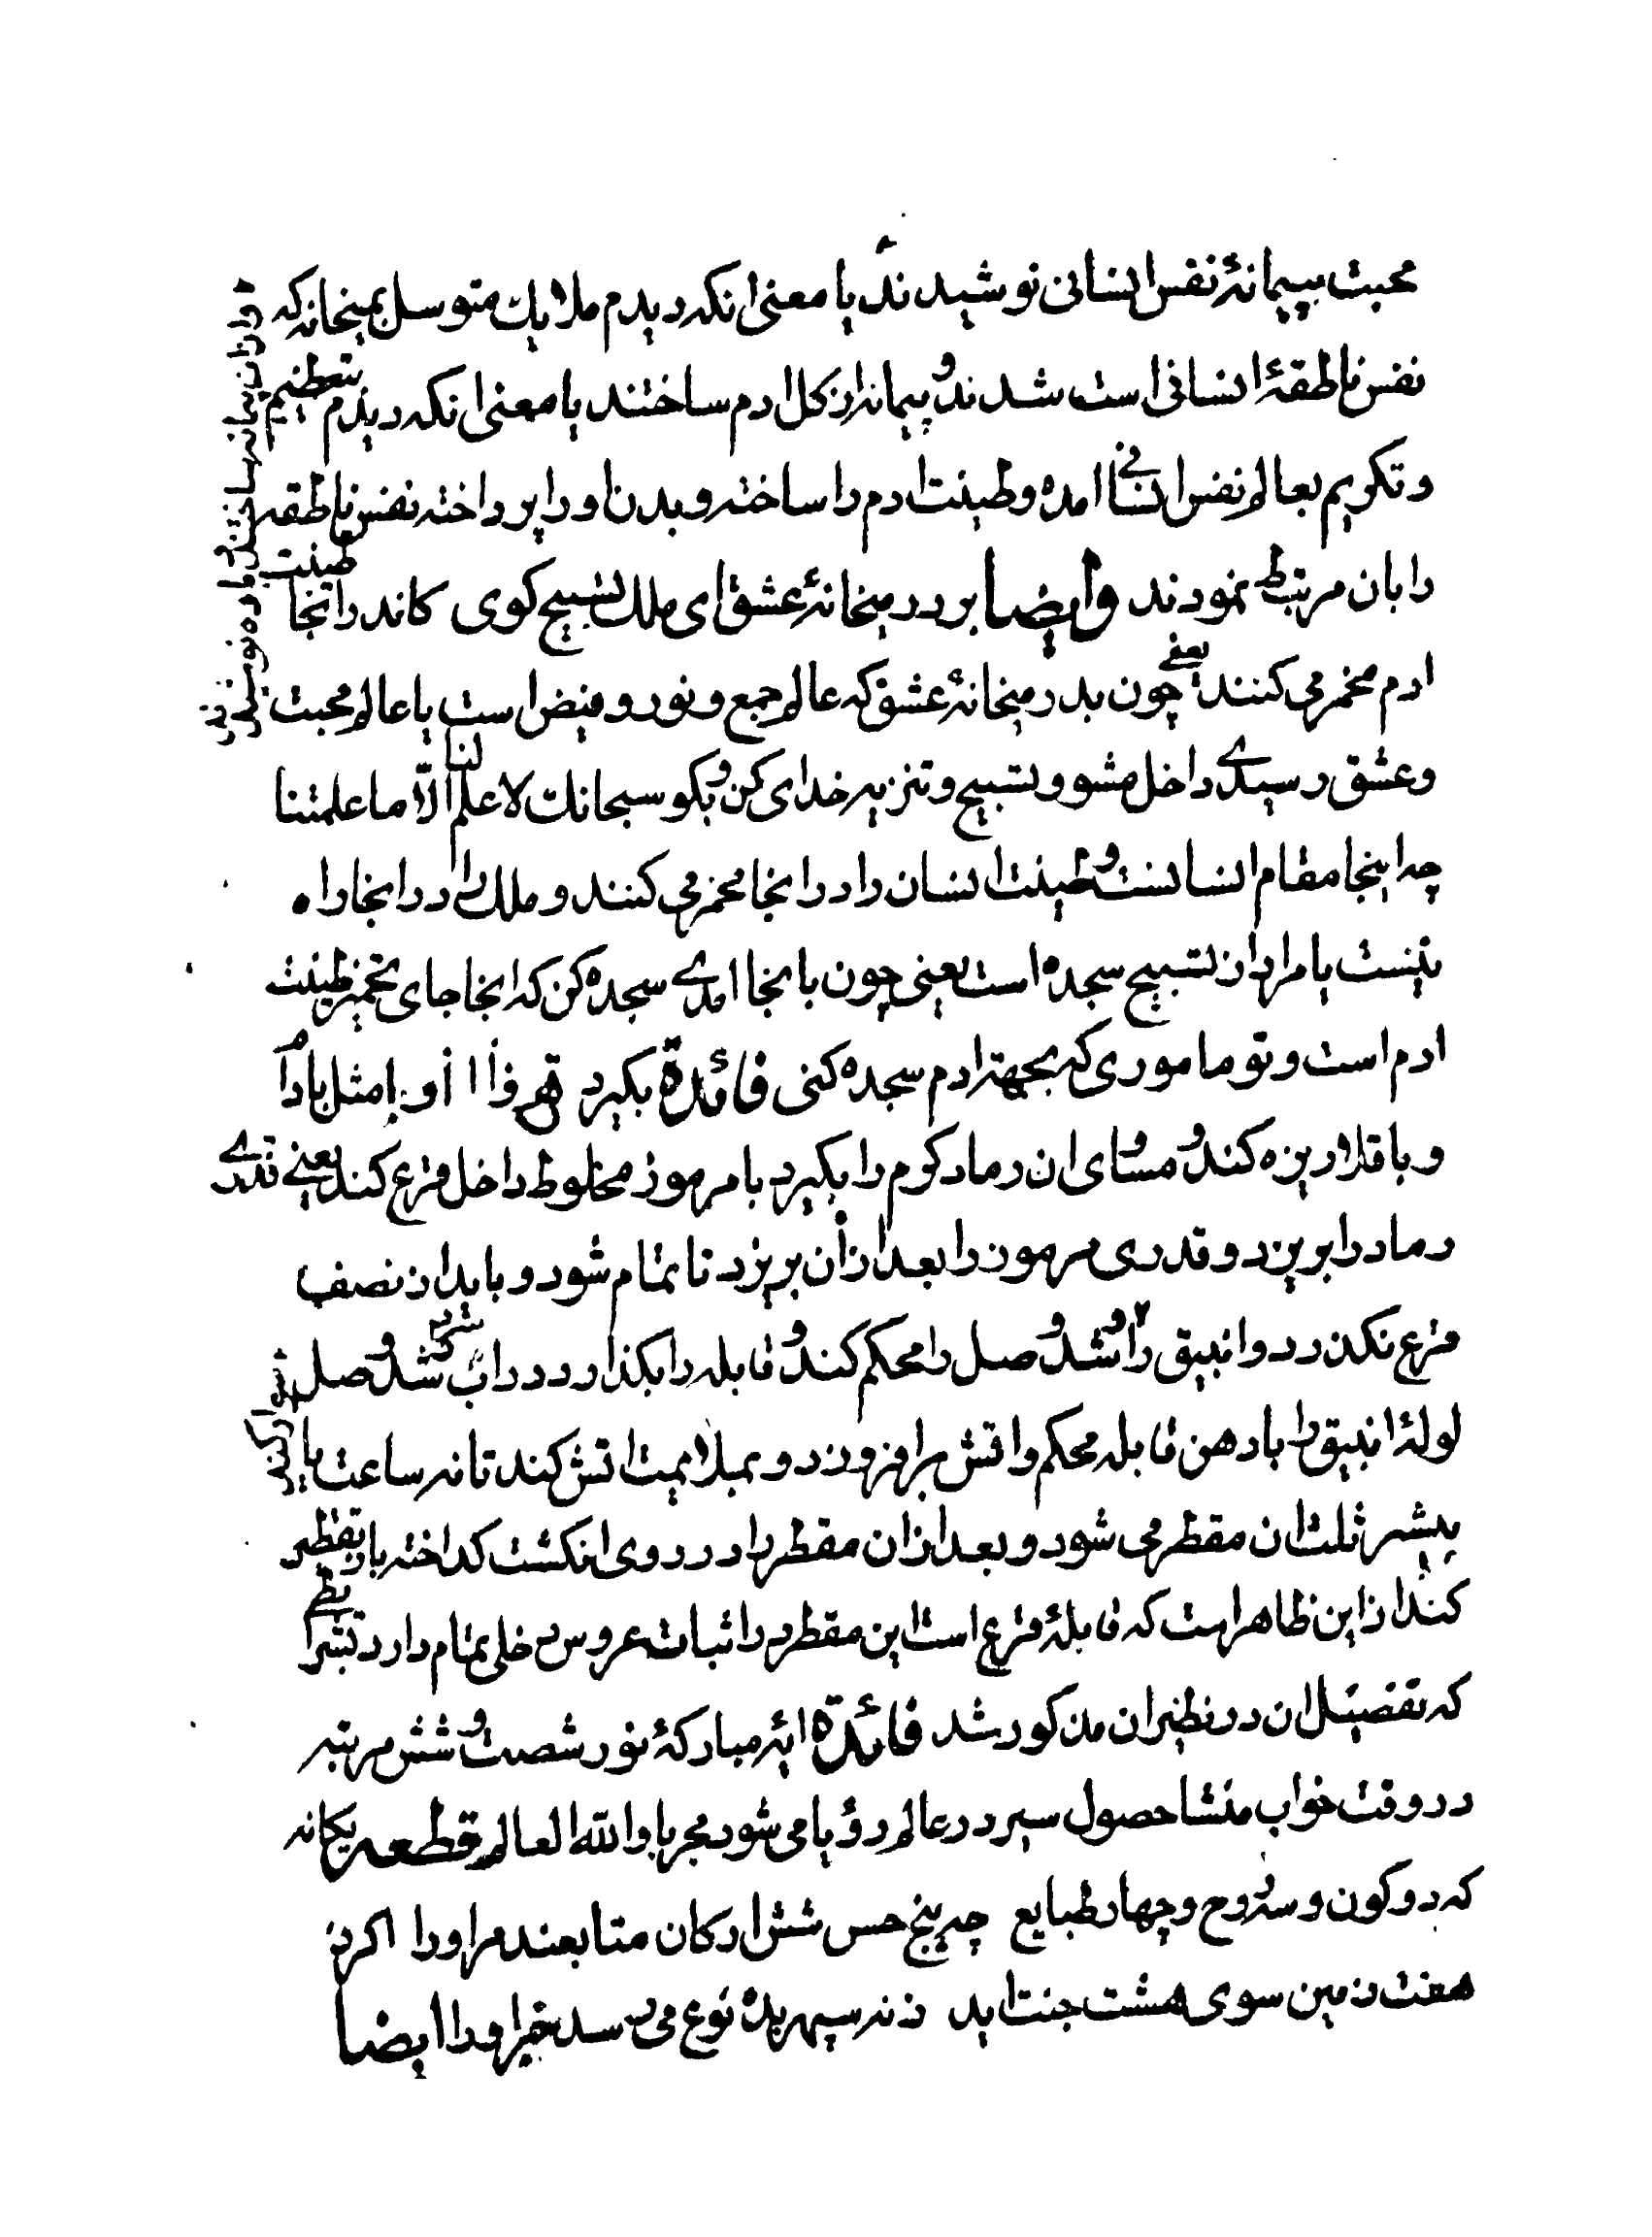 محبت بپیمانهٔ نفس انسانی نوشیدند یا معنی انکه دیدم ملایک متوسل بمیخانه که
نفس ناطقهٔ انسانی است شدند و پیمانه از کل ادم ساختند یا معنی انکه دیدم بتعظیم
و تکریم بعالم نفس انسانی امده و طینت ادم را ساخته و بدن او را پرداخته نفس ناطقه
را بان مرتبط نمودند وایضا بر در میخانهٔ عشق ای ملک تسبیح کوی کاندر انجا طینت
ادم مخمر می کنند یعنی چون بدر میخانهٔ عشق که عالم جمع و نور و فیض است یا عالم محبت
و عشق رسیدی داخل مشو و تسبیح و تنزیه خدای کن و بکو سبحانک لا علم لنا الّا ما علمتنا
چه اینجا مقام انسانست و طینت انسان را در انجا مخمر می کنند و ملک را در انجا راه
نیست یا مراد از تسبیح سجده است یعنی چون بانجا امدی سجده کن که انجا جای تخمیر طینت
ادم است و تو ماموری که بجهة ادم سجده کنی فائدة بکیرد مثل بادام
و باقلا ریزه کند و مساوی ان رماد کرم را بکیرد با مرموز مخلوط داخل قرع کند یعنی قدری
رماد را بریزد و قدری مرموز را بعد از آن بریزد تا تمام شود و باید از نصف
قرع نکذرد و انبیق را و شد و صل را محکم کند و قابله را بکذارد در اب سرد کند و شد و صل
لولهٔ انبیق را با دهن قابله محکم و اتش برافروزد و بملایمت اتش کند تا نه ساعت یا
بیشتر ثلث ان مقطر می شود و بعد از ان مقطر را در روی انکشت کداخته باز تقطیر
کند از این ظاهر است که قابلهٔ قرع است این مقطر در اثبات عروس دخلی تمام دارد
که تفضیل ان در نظیر ان مذکور شد فائدة ایهٔ مبارکهٔ نور شصت و شش مرتبه
در وقت خواب منشا حصول سیر در عالم رؤیا می شود مجربا والله العالم قطعه یکانه
که دو کون و سه روح و چهار طبایع چه پنج حس شش ارکان متابعند مر او را اکر ز
هفت زمین سوی هشت جنت اید ز نه سپهر بده نوع می رسد خیر او را ایضا